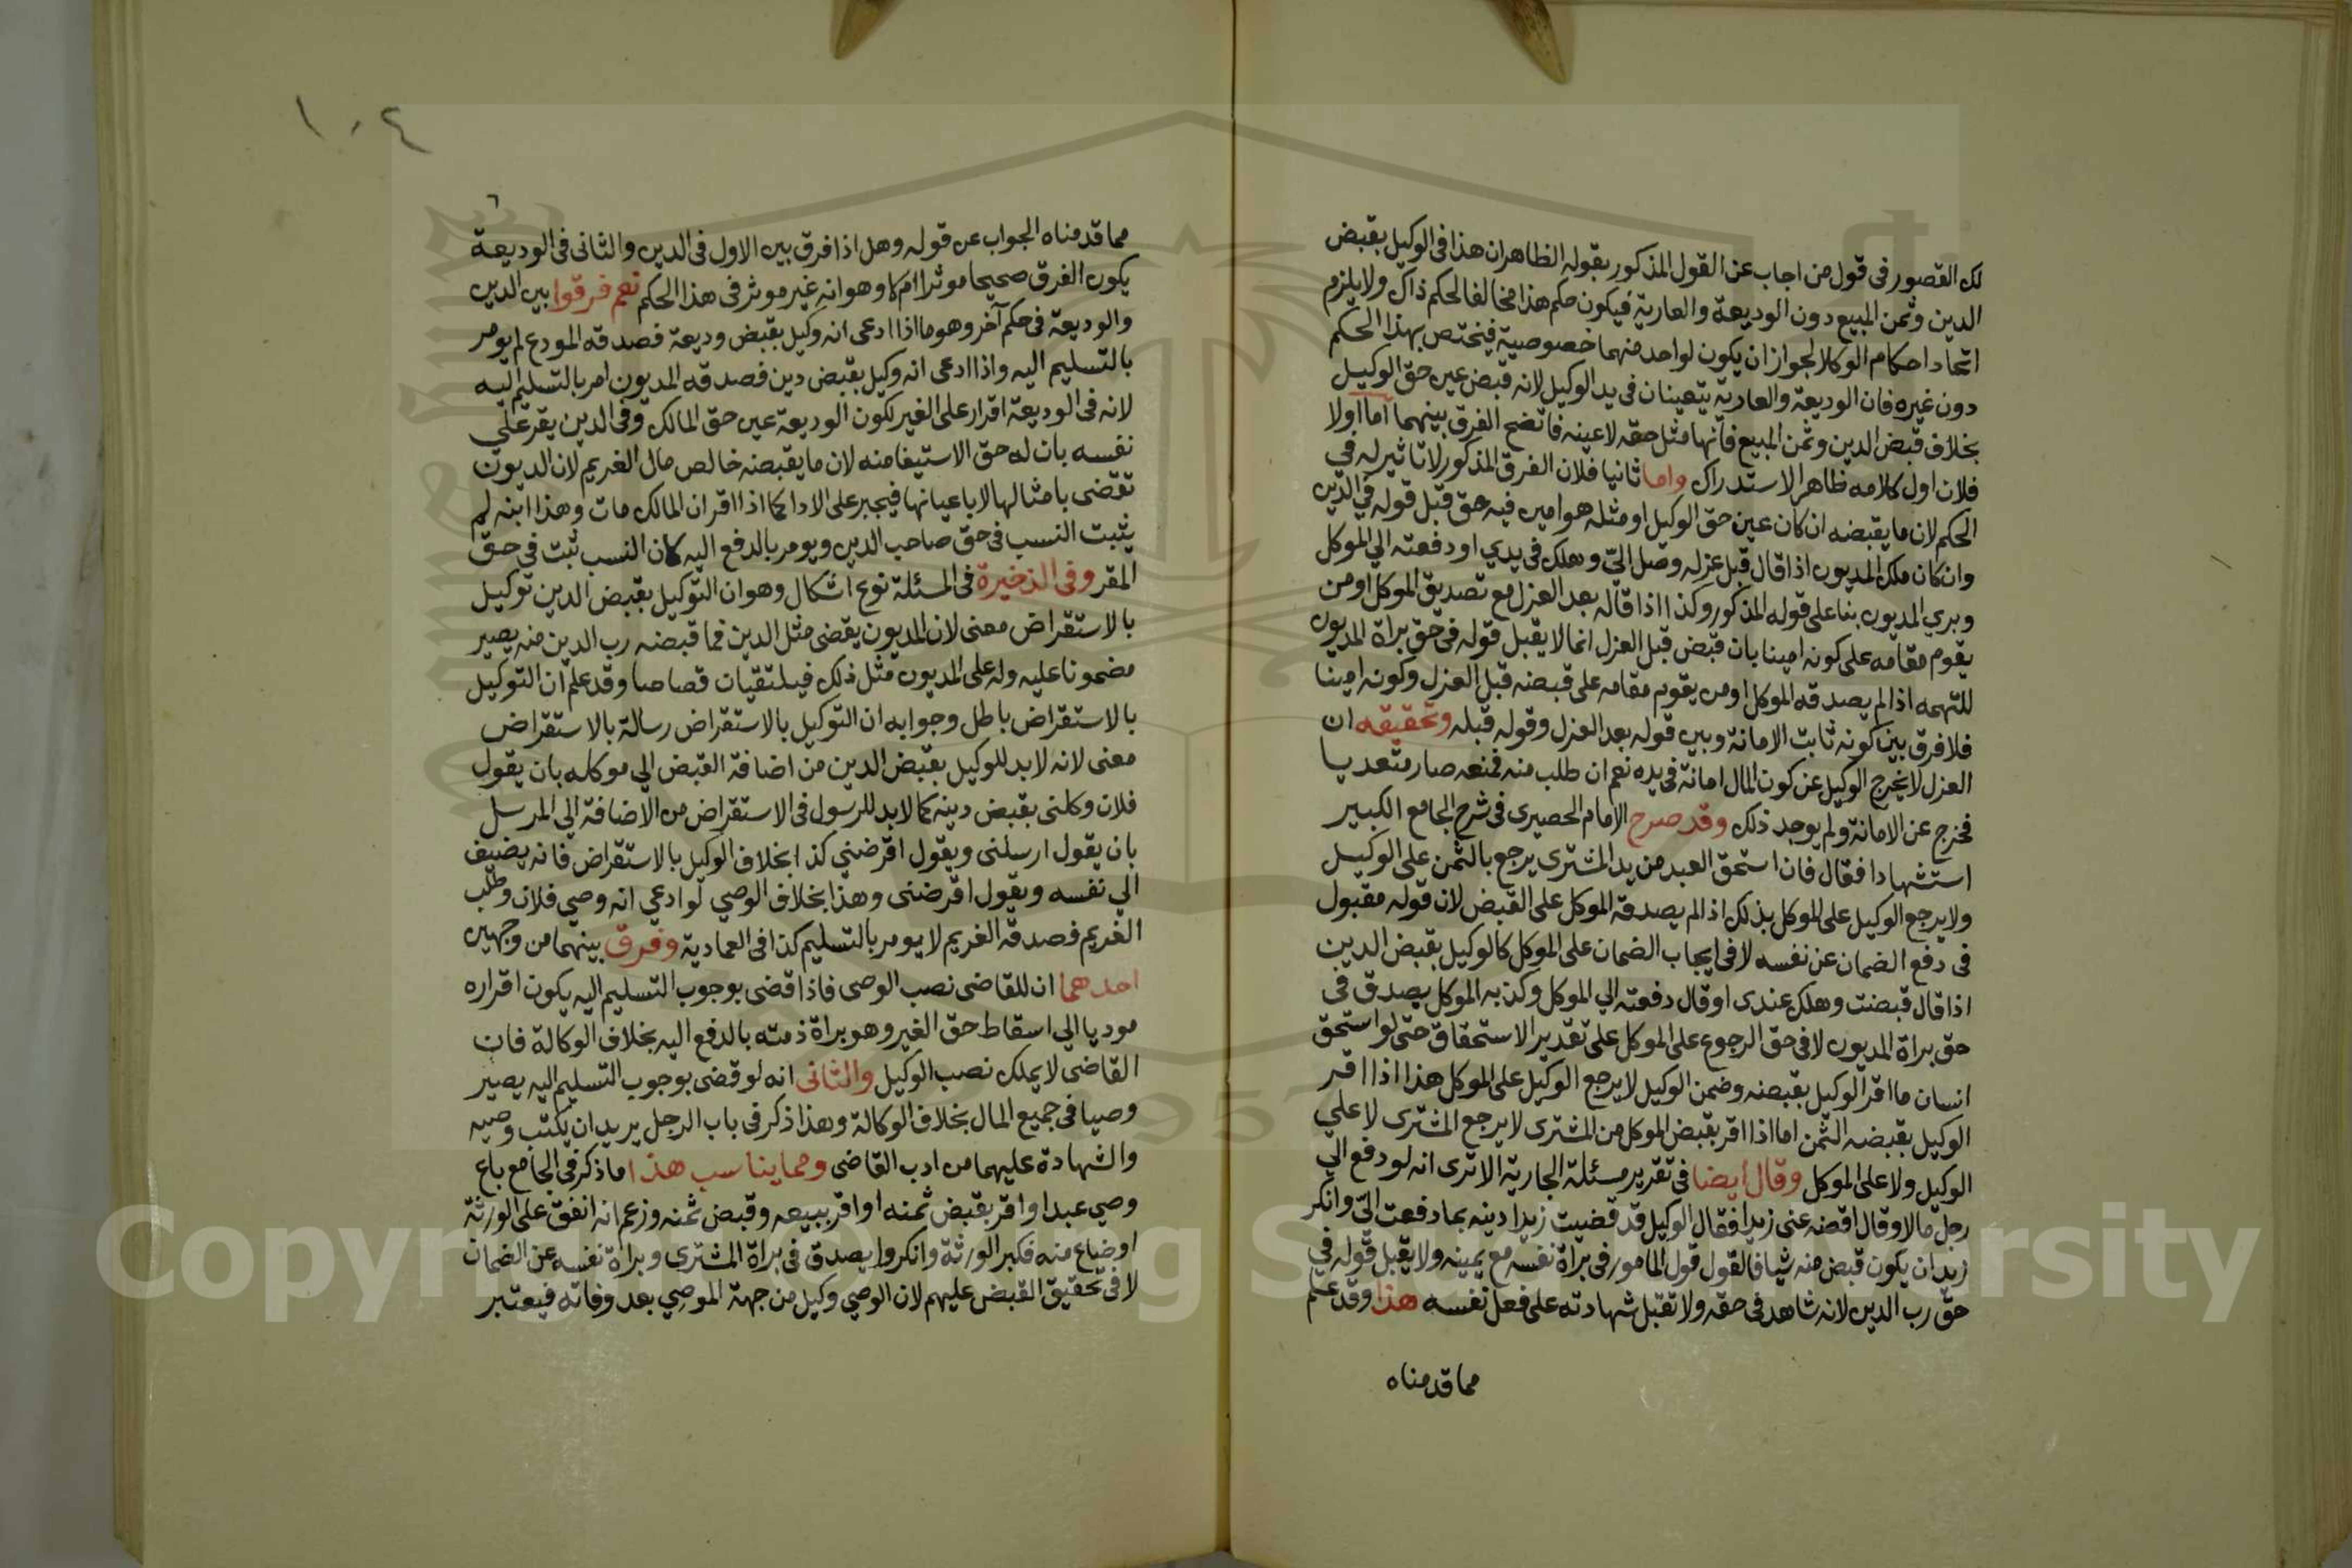 لك القصور فى قول من اجاب عن القول المذكور بقوله الظاهران هذا فى الوكيل بقبض
الدين وثمن المبيع دون الوديعة والعارية فيكون حكم هذا مخالفا لحكم ذاك ولا يلزم
اتحاد احكام الوكلا لجواز ان يكون لواحد منهما خصوصية فيختص بهذا الحكم
دون غيره فان الوديعة والعارية يتعينان فى يد الوكيل لانه قبض عين حق الوكيل
بخلاف قبض الدين وثمن المبيع فانها مثل حقه لا عينه فاتضح الفرق بينهما اما اولا
فلان اول كلامه ظاهر الاستدراك واما ثانيا فلان الفرق المذكور لا تاثير له في
الحكم لان ما يقبضه ان كان عين حق الوكيل او مثله هو امين فيه حق قبل قوله في الدين
وان كان ملك المديون اذا قال قبل عزله وصل اليّ وهلك فى يدي او دفعته الي الموكل
وبري المديون بنا على قوله المذكور وكذا اذا قاله بعد العزل مع تصديق الموكل او من
يقوم مقامه على كونه امينا بان قبض قبل العزل انما لا يقبل قوله فى حق براة المديون
للتهمه اذا لم يصدقه الموكل او من يقوم مقامه على قبضه قبل العزل وكونه امينا
فلا فرق بين كونه ثابت الامانة وبين قوله بعد العزل وقوله قبله وتحقيقه ان
العزل لا يخرج الوكيل عن كون المال امانة فى يده نعم ان طلب منه فمنعه صار متعديا
فخرج عن الامانة ولم يوجد ذلك وقد صرح الامام الحصيرى فى شرح الجامع الكبير
استشهادا فقال فان استحق العبد من يد المشترى يرجع بالثمن على الوكيل
ولا يرجع الوكيل على الموكل بذلك اذا لم يصدقه الموكل على القبض لان قوله مقبول
فى دفع الضمان عن نفسه لا فى ايجاب الضمان على الموكل كالوكيل بقبض الدين
اذا قال قبضت وهلك عندى او قال دفعته الي الموكل وكذبه الموكل يصدق في
حق براة المديون لا فى حق الرجوع على الموكل على تقدير الاستحقاق حتى لو استحق
انسان ما اقر الوكيل بقبضه وضمن الوكيل لا يرجع الوكيل على الموكل هذا اذا اقر
الوكيل بقبضه الثمن اما اذا اقر بقبض الموكل من المشترى لا يرجع المشترى لا علي
الوكيل ولا على الموكل وقال ايضا فى تقرير مسئلة الجارية الا ترى انه لو دفع الي
رجل مالا وقال اقضه عنى زيدا فقال الوكيل قد قضيت زيدا دينه بما دفعت اليّ وانكر
زيد ان يكون قبض منه شيا فالقول قول المامور فى براة نفسه مع يمينه ولا يقبل قوله في
حق رب الدين لانه شاهد فى حقه ولا تقبل شهادته على فعل نفسه هذا وقد علم
مما قدمناه
١٠٤
٦
مما قدمناه الجواب عن قوله وهل اذا فرق بين الاول فى الدين والثانى فى الوديعة
يكون الفرق صحيحا موثرا ام لا وهو انه غير موثر فى هذا الحكم نعم فرقوا بين الدين
والوديعة فى حكم آخر وهو ما اذا ادعى انه وكيل بقبض وديعة فصدقه المودع لم يومر
بالتسليم اليه واذا ادعى انه وكيل بقبض دين فصدقه المديون امر بالتسليم اليه
لانه فى الوديعة اقرار على الغير لكون الوديعة عين حق المالك وفى الدين يقر علي
نفسه بان له حق الاستيفا منه لان ما يقبضه خالص مال الغريم لان الديون
تقضى بامثالها لا باعيانها فيجبر على الادا كما اذا اقر ان المالك مات وهذا ابنه لم
يثبت النسب فى حق صاحب الدين ويومر بالدفع اليه كان النسب ثبت في حق
المقر وفى الذخيرة فى المسئلة نوع اشكال وهو ان التوكيل بقبض الدين توكيل
بالاستقراض معنى لان المديون يقضى مثل الدين فما قبضه رب الدين منه يصير
مضمونا عليه وله على المديون مثل ذلك فيلتقيان قصاصا وقد علم ان التوكيل
بالاستقراض باطل وجوابه ان التوكيل بالاستقراض رسالة بالاستقراض
معنى لانه لابد للوكيل بقبض الدين من اضافة القبض الي موكله بان يقول
فلان وكلنى بقبض دينه كما لابد للرسول فى الاستقراض من الاضافة الي المرسل
بان يقول ارسلنى ويقول اقرضني كذا بخلاف الوكيل بالاستقراض فانه يضيف
الي نفسه ويقول اقرضنى وهذا بخلاف الوصي لو ادعي انه وصي فلان وطلب
الغريم فصدقه الغريم لا يومر بالتسليم كذا فى العمادية وفرق بينهما من وجهين
احدهما ان للقاضى نصب الوصى فاذا قضى بوجوب التسليم اليه يكون اقراره
موديا الي اسقاط حق الغير وهو براة ذمته بالدفع اليه بخلاف الوكالة فان
القاضى لا يملك نصب الوكيل والثانى انه لو قضى بوجوب التسليم اليه يصير
وصيا فى جميع المال بخلاف الوكالة وهذا ذكر فى باب الرجل يريد ان يكتب وصيه
والشهادة عليهما من ادب القاضى ومما يناسب هذا ما ذكر فى الجامع باع
وصي عبدا واقر بقبض ثمنه او اقر ببيعه وقبض ثمنه وزعم انه انفق على الورثة
او ضاع منه فكبر الورثة وانكروا يصدق فى براة المشترى وبراة نفسه عن الضمان
لا فى تحقيق القبض عليهم لان الوصي وكيل من جهة الموصي بعد وفاته فيعتبر